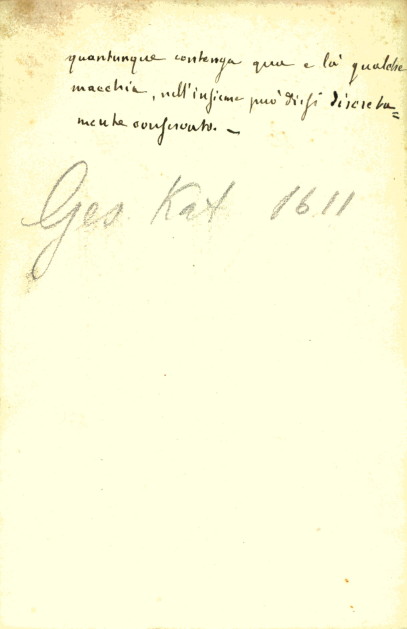 quantunque contenga qua e là qualche
macchia, nell'insieme può dirsi discreta=
mente conservato. –
Ges Kat 1611